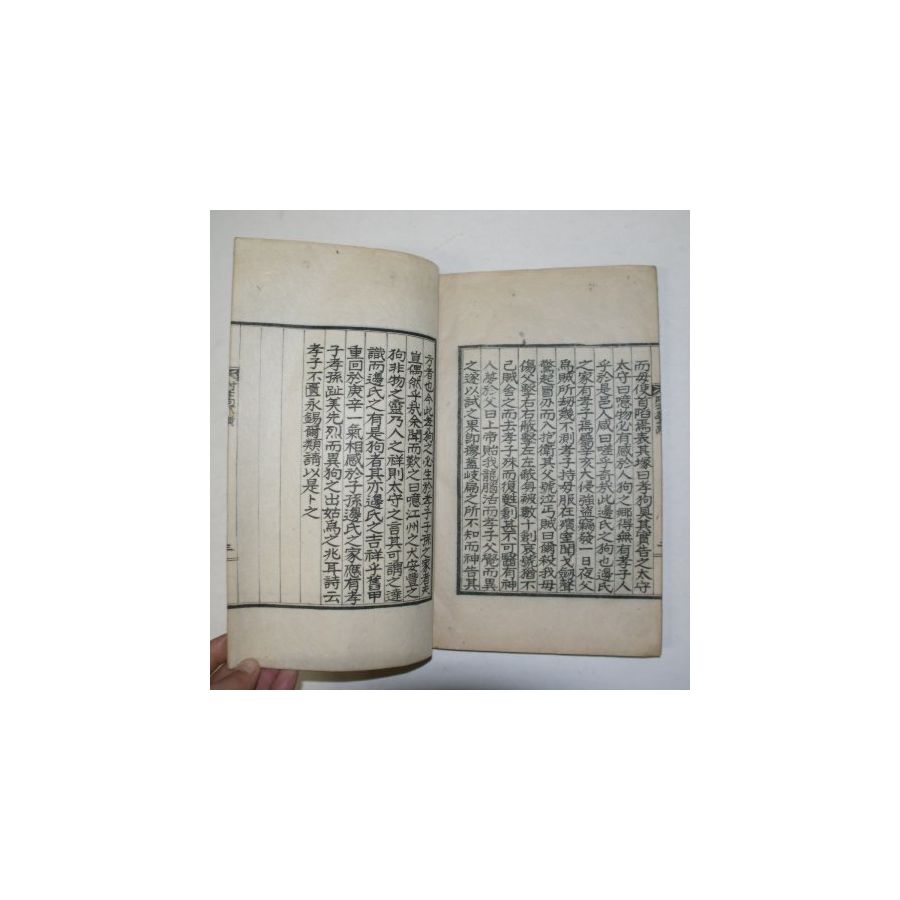 而毋復首陷焉表其塚曰孝狗具其實告之太守
太守曰噫物必有感於人狗之鄕得無有孝子人
乎於是邑人咸曰嗟乎奇哉此邊氏之狗也邊氏
之家有孝子焉辛亥大侵強盜竊發一日夜父
爲賊所劫幾不測孝子持母服在殯室聞戈劒聲
驚起冒刃而入抱衛其父號泣丐賊曰爾殺我毋
傷父擊右右蔽擊左左蔽身被數十創哀號猶不
已賊舍之而去孝子殊而復甦創甚不可醫有神
人夢於父曰上帝貽我龍腦治而孝子父覺而異
之遂以試之果卽瘳蓋岐扁之所不知而神告其
方者也今此孝狗之必生於孝子子孫之家者夫
豈偶然乎哉余聞而歎之曰噫江州之犬安豐之
狗非物之靈乃人之祥則太守之言其可謂之達
識而邊氏之有是狗者其亦邊氏之吉祥乎舊甲
重回於庚辛一氣相感於子孫邊氏之家應有孝
子孝孫趾美先烈而異狗之出姑爲之兆耳詩云
孝子不匱永錫爾類請以是卜之
二
三